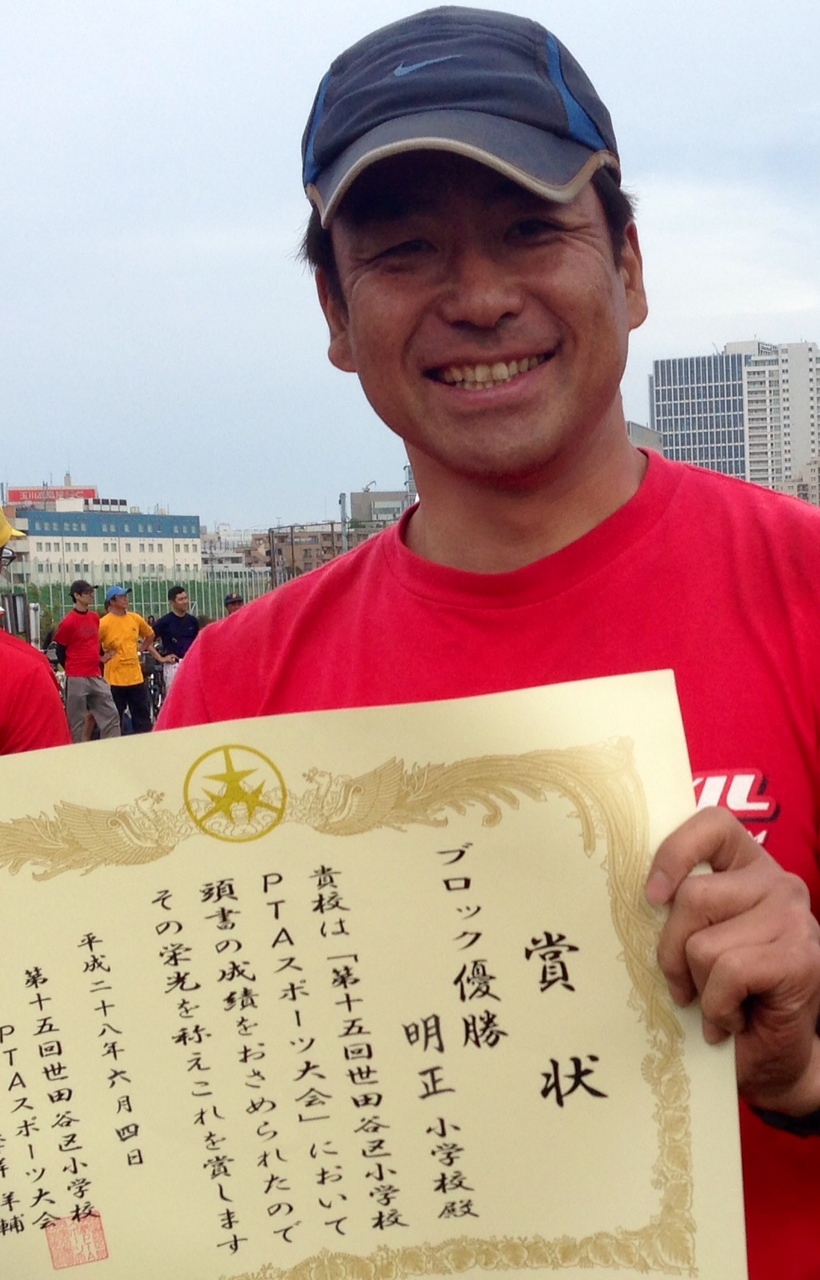 賞状
ブロック優勝
明正小学校殿
貴校は「第十五回世田谷区小学校
PTAスポーツ大会」において
頭書の成績をおさめられたので
その栄光を称えこれを賞します
平成二十八年六月四日
第十五回世田谷区小学校
PTAスポーツ大会
洋輔